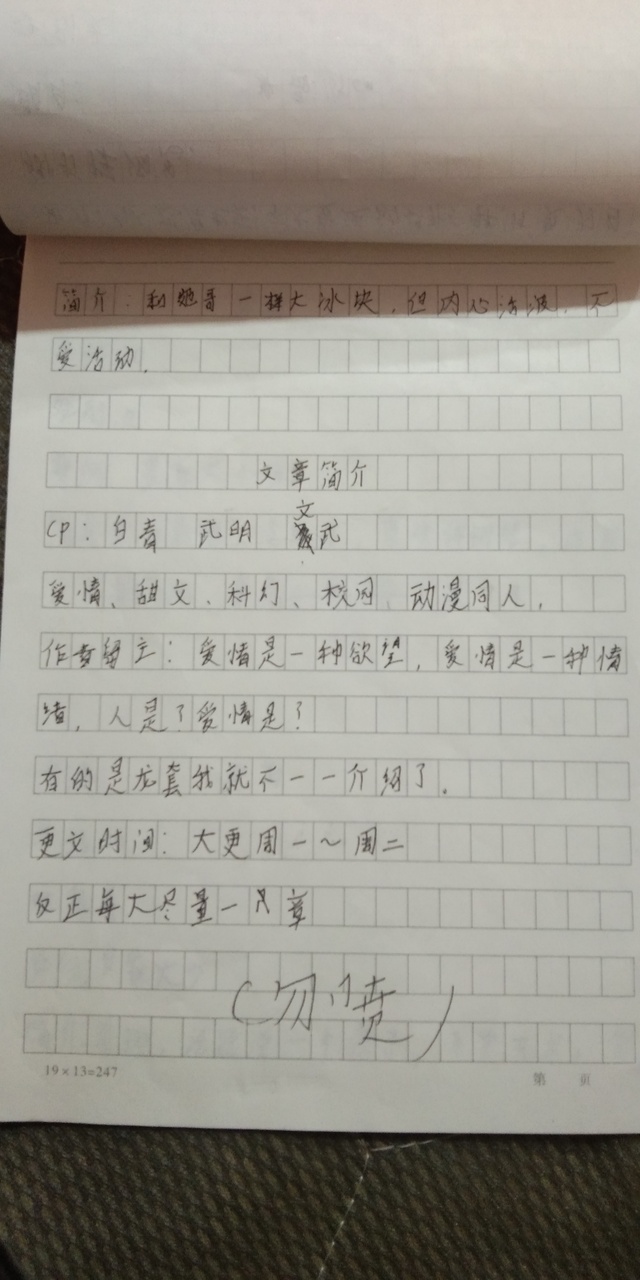 简介：和她哥一样大冰块，但内心活泼，不
爱活动．
文章简介
CP：白青 武明 文武
爱情、甜文、科幻、校园、动漫同人．
作者留言：爱情是一种欲望，爱情是一种情
绪，人是？爱情是？
有的是龙套我就不一一介绍了．
更文时间：大更周一～周二
反正每天尽量一只章
（勿喷）
19×13=247
第 页